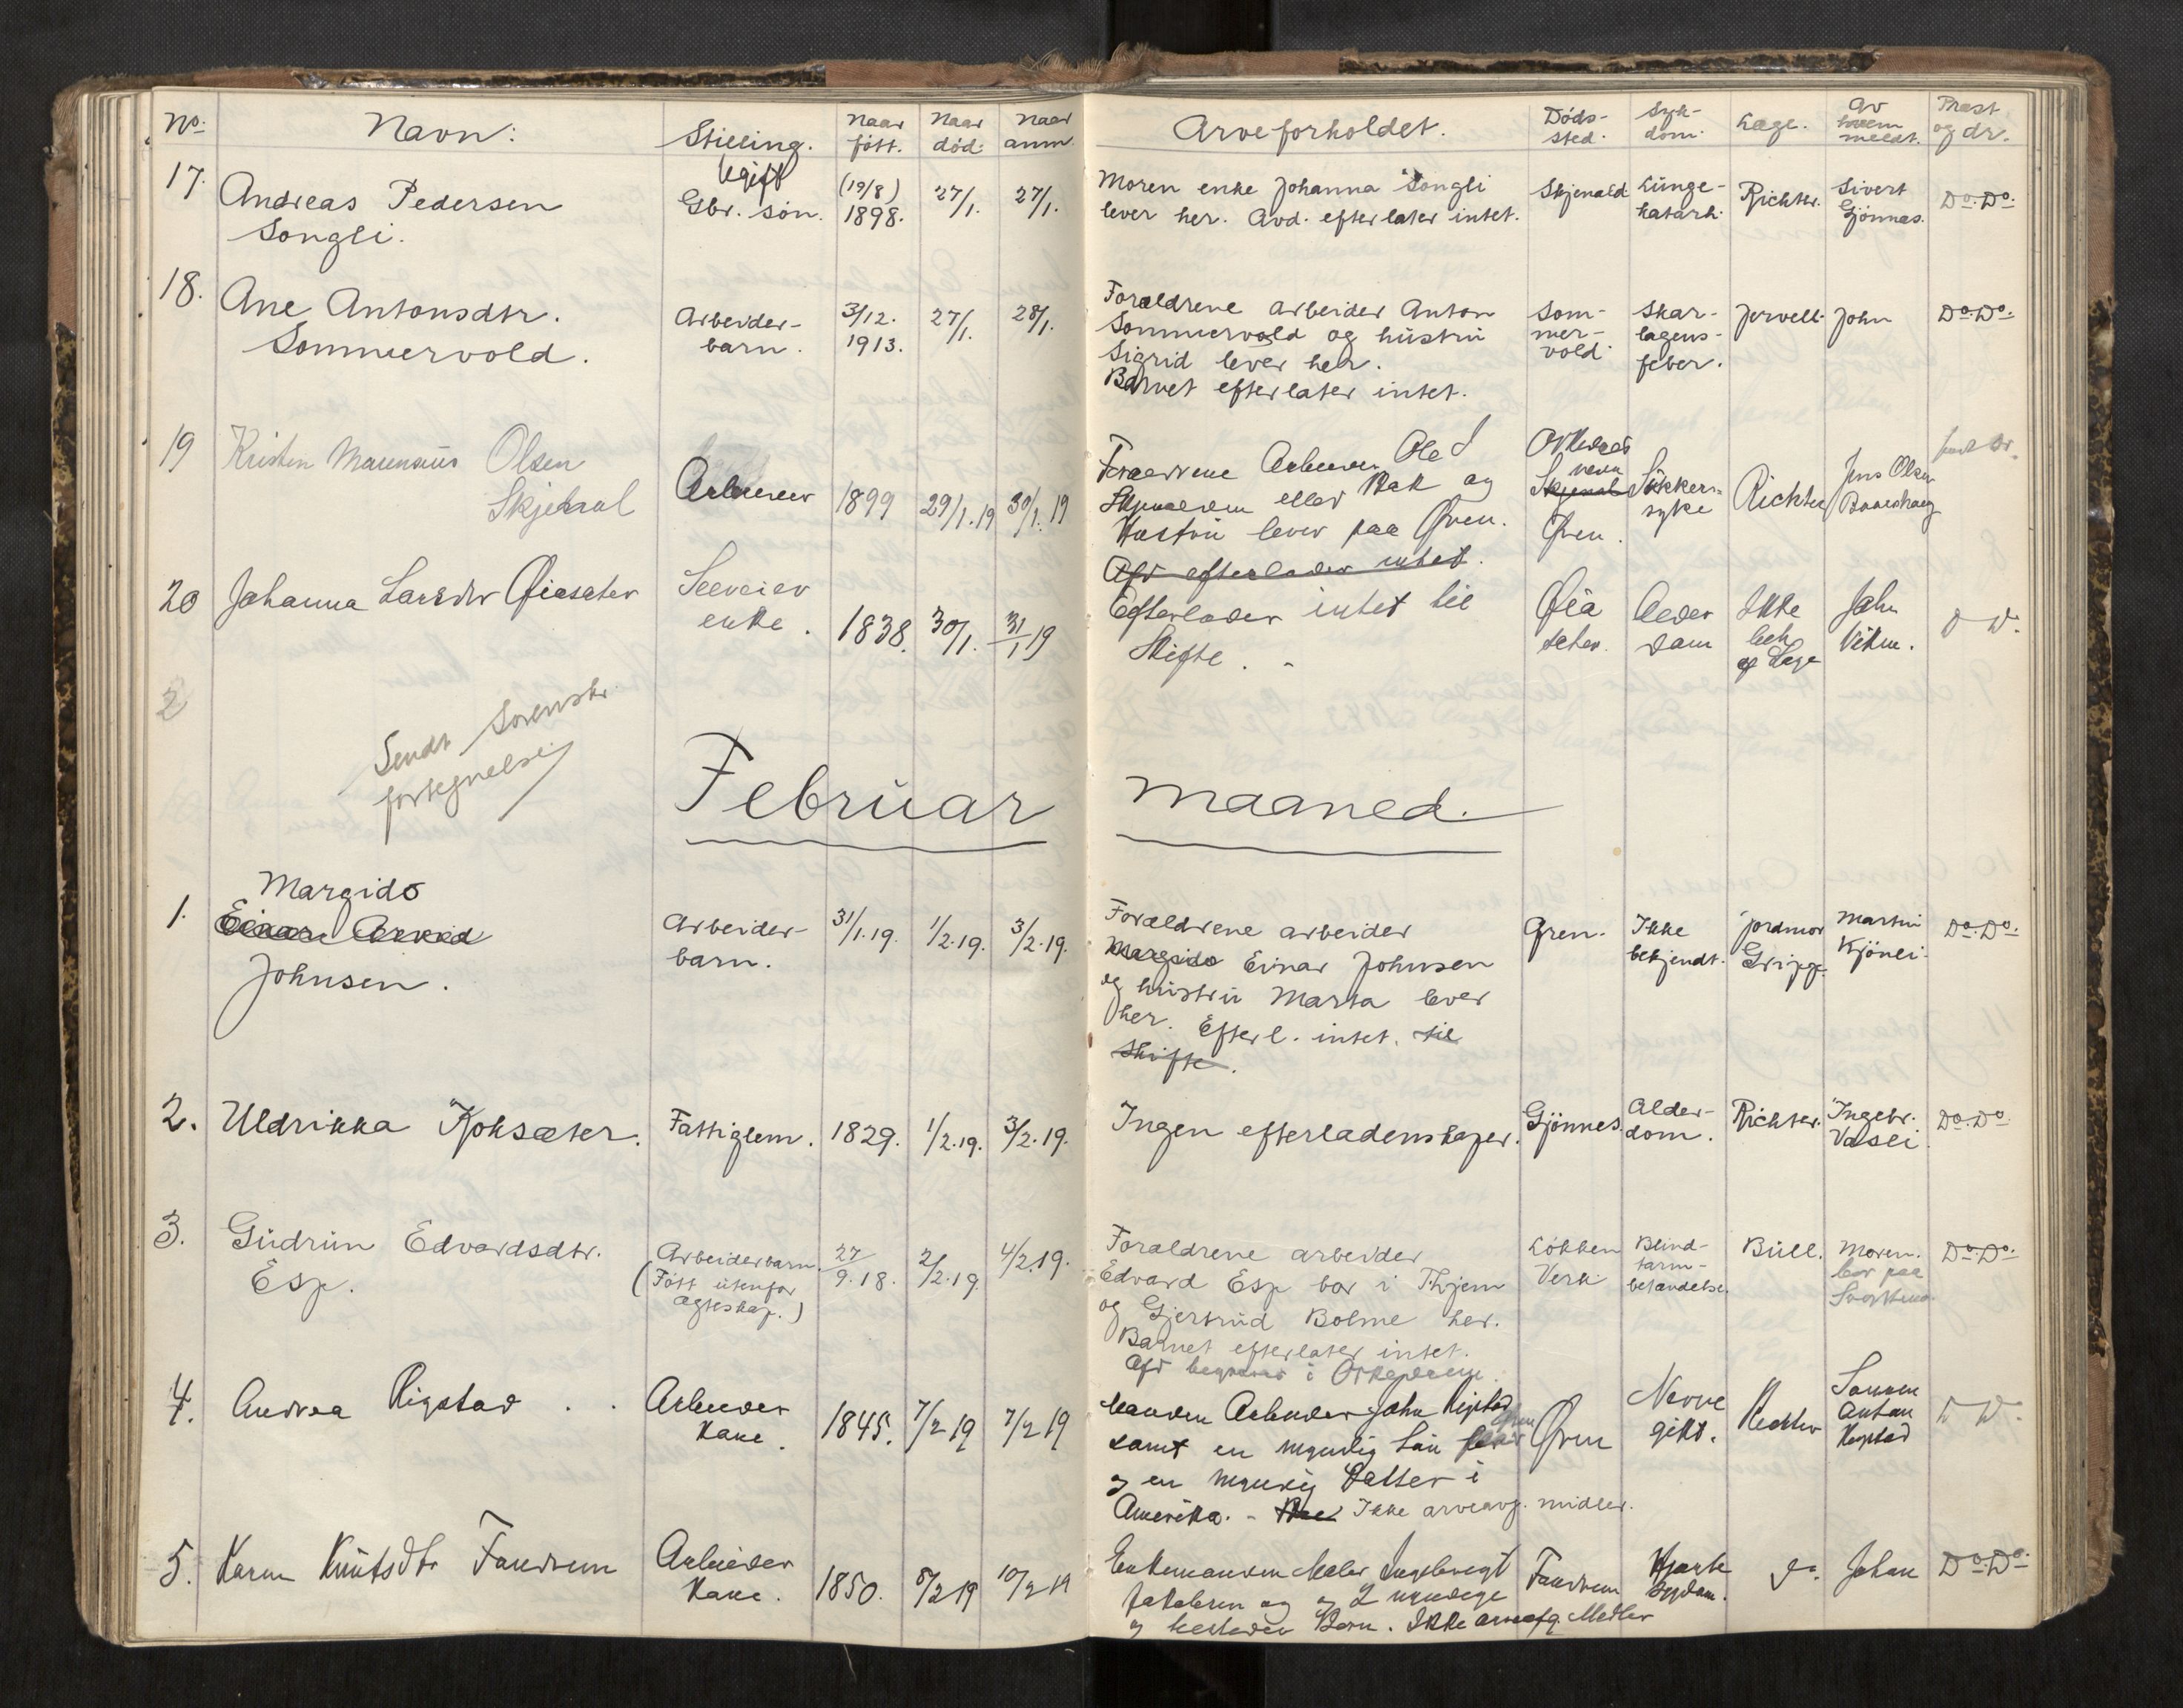 No. Navn: Stilling. Naar født. Naar død. Naar anm. Arveforholdet. Døds-sted. Syk-dom. Læge. Av hvem meldt. Præst og dr.
17. Andreas Pedersen Songli.
Ugift
Gbr. søn.
(19/8) 1898.
27/1.
27/1.
Moren enke Johanna Songli
lever her. Avd. efterlater intet.
Skjenald
Lunge-
katarh.
Richter.
Sivert
Gjønnes.
Do. Do.
18. Ane Antonsdtr.
Sommervold.
Arbeider-
barn.
3/12. 1913.
27/1.
28/1.
Forældrene arbeider Anton
Sommervold og hustru
Sigrid lever her.
Barnet efterlater intet.
Som-
mer-
vold.
Skar-
lagens-
feber.
Jervell.
John
Do. Do.
19 Kristen Marensius Olsen
Skjenal
Arbeider
1899
29/1.19
30/1.19
Forældrene Arbeider Ole
eller Bak og
Hustru lever paa Øren.
Afd efterlader intet.
Skjenal
Øren.
Sukker-
syke
Richter
Jens Olsen
20 Johanna Larsdtr Øiasæter
enke.
1838.
30/1.
31/1 19
Efterlader intet til
Skifte.
Øia
sæter.
Alder
dom
Ikke
beh.
af Læge
John
Vikm.
D D.
2
Sendt Sorenskr.
fortegnelse
Februar maaned.
1. Margido
Einar Arvid
Johnsen.
Arbeider-
barn.
31/1.19.
1/2.19.
3/2.19.
Forældrene arbeider
Margido Einar Johnsen
og hustru Marta lever
her. Efterl. intet. til
skifte.
Øren.
Ikke
bekjendt.
Jordmor
Gripp.
Martin
Kjønli.
Do. Do.
2. Uldrikka Kjoksæter.
Fattiglem.
1829.
1/2.19.
3/2.19.
Ingen efterladenskaper.
Gjønnes.
Alder-
dom.
Richter.
Ingebr.
Vasli
Do. Do.
3. Gudrun Edvardsdtr.
Esp.
Arbeiderbarn.
(Født utenfor
ægteskap.)
27/9.18.
2/2.19.
4/2.19.
Forældrene arbeider
Edvard Esp bor i Thjem
og Gjertrud Bolme her.
Barnet efterlater intet.
Afd begraves i Orkedalen.
Løkken
Verk.
Blind-
tarm-
betændelse.
Bull.
Moren.
bor paa
Do. Do.
4. Andrea Rigstad
Arbeider
Kone.
1845.
7/2 19
7/2 19
Manden Arbeider John Rigstad
samt en myndig Søn
og en myndig Datter i
Amerika. - Ikke arveavg. midler.
Øren
Nerve
gikt.
Richter
Sønnen
Anton
Rigstad
D D.
5. Karen Knutsdtr Fandrem
Arbeider
Kone.
1850.
8/2 19
10/2 19
Enkemanden Maler Ingebrigt
Jakobsen og 2 myndige
Børn. Ikke arveafg. Midler
Fandrem
Hjerte
sygdom.
do.
Johan
Do. Do.